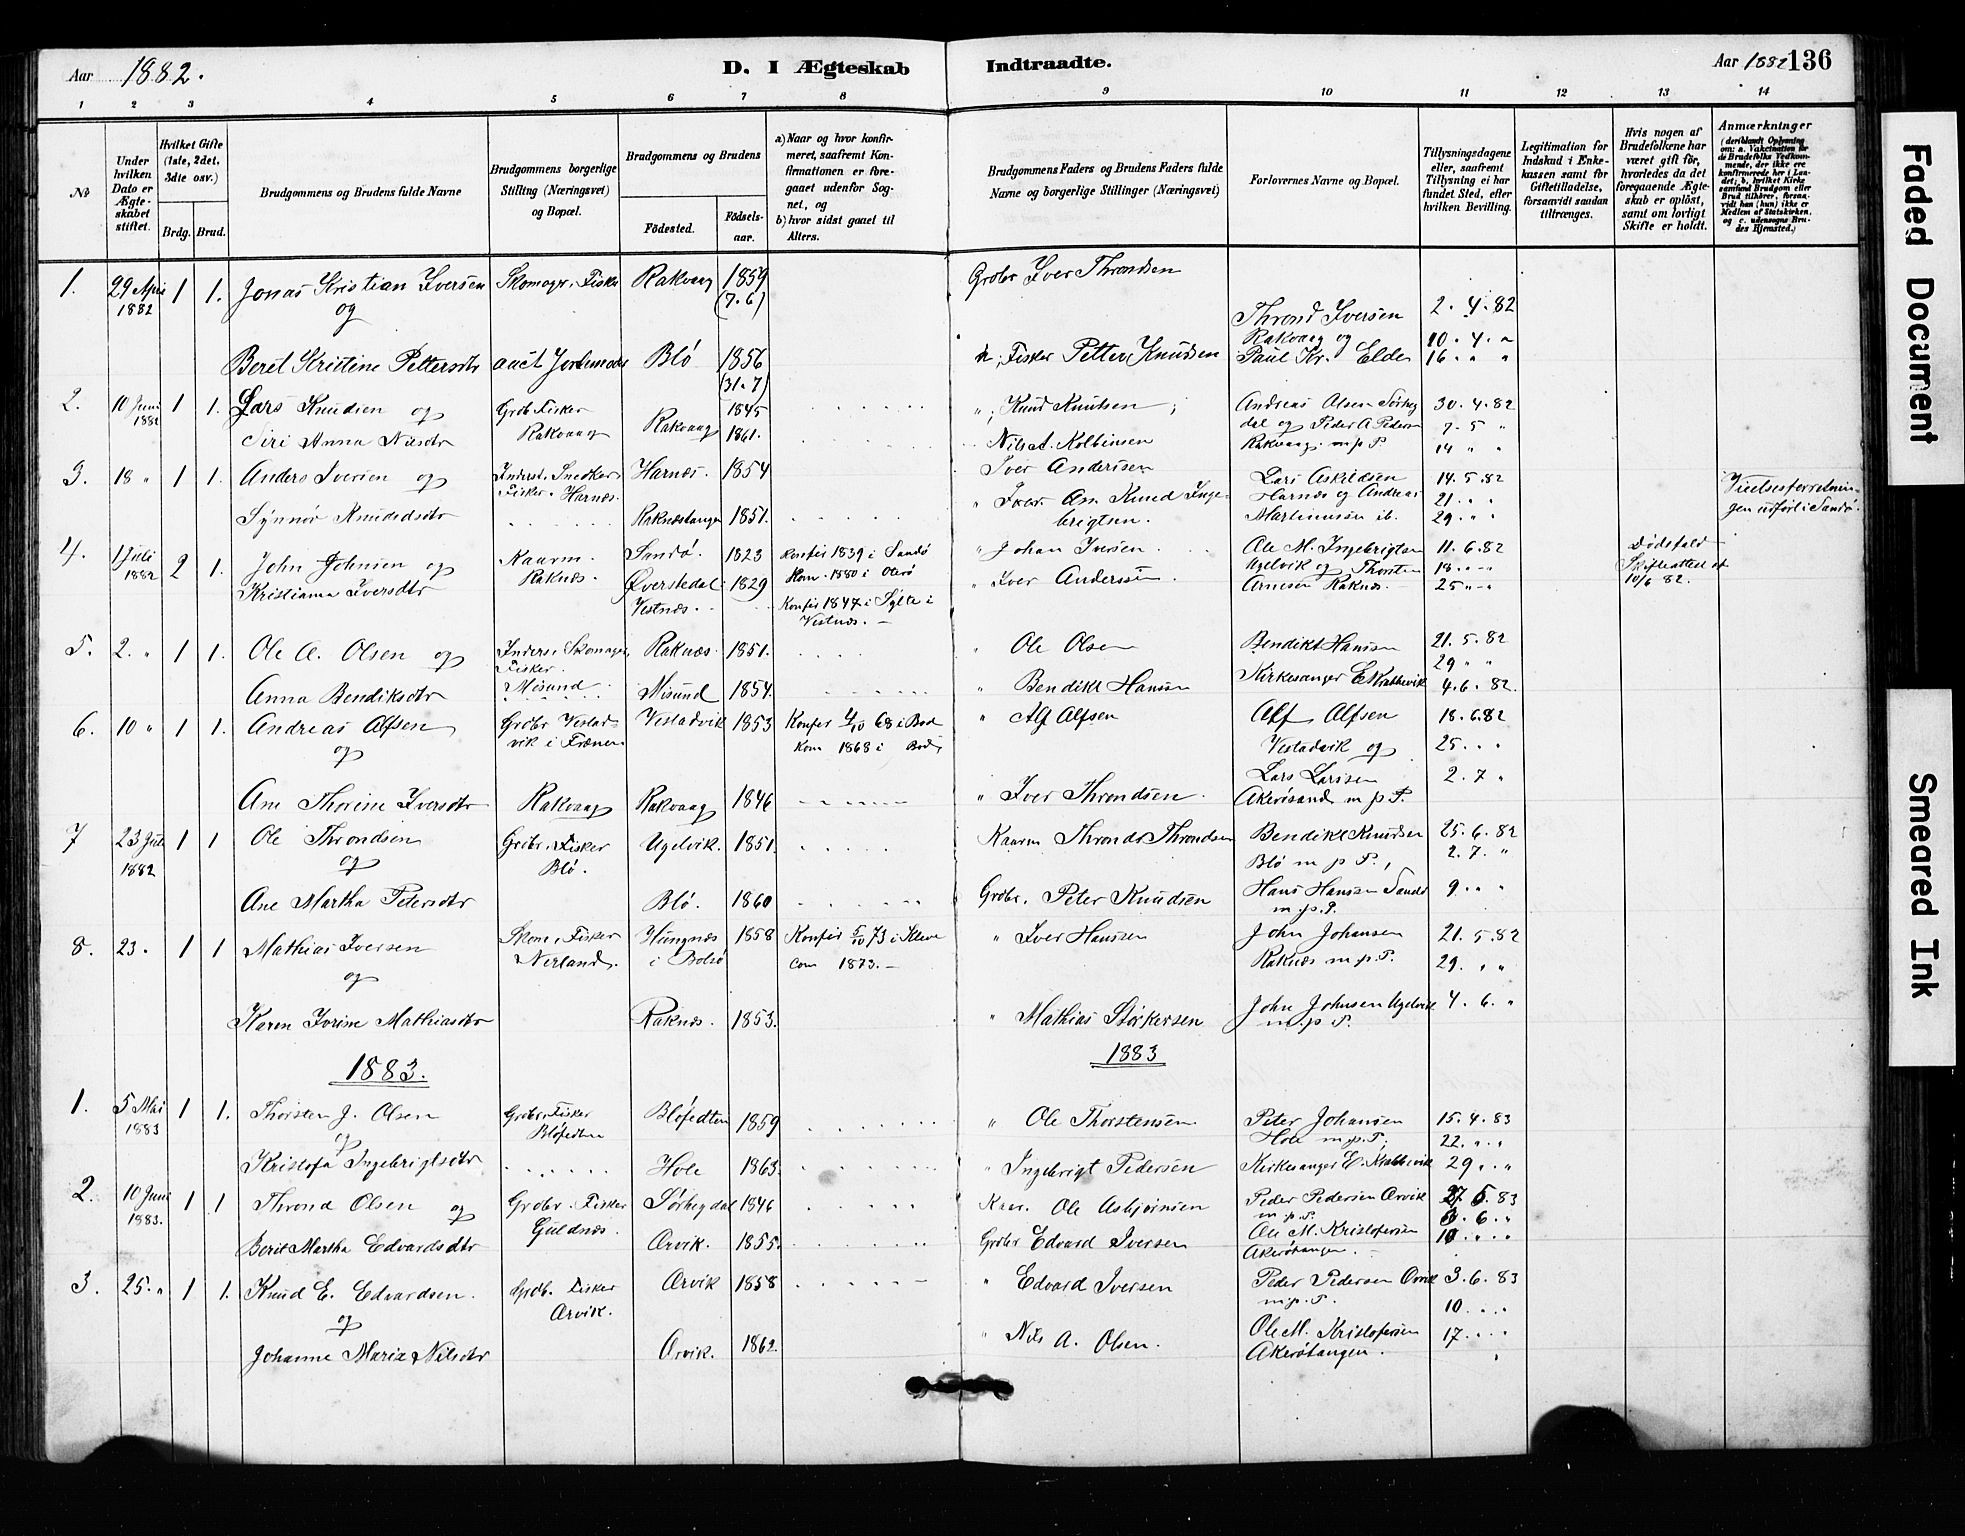 Aar 1882.
D. I Ægteskab Indtraadte.
Aar 1882 136
1 2 3 4 5 6 7 8 9 10 11 12 13 14
No
Under hvilken Dato er Ægteskabet stiftet.
Hvilket Gifte (1ste, 2det, 3die osv.)
Brdg. Brud.
Brudgommens og Brudens fulde Navne
Brudgommens borgerlige Stilling (Næringsvei) og Bopæl.
Brudgommens og Brudens
Födested. Födselsaar.
a) Naar og hvor konfirmeret, saafremt Konfirmationen er foregaaet udenfor Sognet, og
b) hvor sidst gaaet til Alters.
Brudgommens Faders og Brudens Faders fulde Navne og borgerlige Stillinger (Næringsvei)
Forlovernes Navne og Bopæl.
Tillysningsdagene eller, saafremt Tillysning ei har fundet Sted, efter hvilken Bevilling.
Legitimation for Indskud i Enkekassen samt for Giftetilladelse, forsaavidt saadan tiltrænges.
Hvis nogen af Brudefolkene har været gift før, hvorledes da det foregaaende Ægteskab er oplöst, samt om lovligt Skifte er holdt.
Anmærkninger
1. 29 April 1 1. Jonas Kristian Iversen Skomagr. Fisker Rakvaag 1859 Grdbr Iver Throndsen
1882 og (7.6) Thrond Iversen 2.4.82
Rakvaag og 10.4.
Beret Kristine Pettersdtr Blö 1856 Fisker Petter Knudsen Paul Kr. Elde 16 " "
(31.7)
2. 10 Juni 1 1. Lars Knudsen og Grdb Fisker 1845 " Knud Knutsen Andreas Olsen 30.4.82
1882 Rakvaag Rakvaag dal og Peder A Peders 7.5 "
Siri Anna Nilsdtr 1861. Nils A. Kolbinsen Rakvaag m.p.P. 14 " "
3. 18 " 1 1. Anders Iversen og Inderst. Snedker Harnæs. 1854 Iver Andersen Lars Askildsen 14.5.82
Fisker. Harnæs. Harnæs og Andreas 21. " "
Synnör Knudsdtr Raknæstangen 1851. Knud Ingebrigtsen. Martinussen ib. 29. " "
Vielsesforretningen udført i Sandö.
4. 1 Juli 2 1. John Johnsen og Kaarm. Sandö. 1823 Konfir 1839 i Sandö " Johan Iversen Ole M. Ingebrigtsen 11.6.82 Dödsfald
1882 Raknæs. Kom. 1880 i Ugelvik og Thorsten 18. " "
Kristianna Iversdtr 1829 Konfir 1847 i Sylte i " Iver Anderssen Arnesen Raknæs. 25 " "
Vestnæs. Vestnæs. 10/6 82.
5. 2. " 1 1. Ole A. Olsen og Inders. Skomager Raknæs. 1851. " Ole Olsen Bendikt Hansen 21.5.82
Fisker. 29 " "
Anna Bendiksdtr Misund Misund 1854. " Bendikt Hansen Kirkesanger E Krabbevik 4.6.82.
6. 10 " 1 1. Andreas Alfsen Grdbr Vestad- Vestadvik 1853 Konfir 4/10 68 i Bud " Alf Alfsen Alf Alfsen 18.6.82
og vik i Frænen Kom 1868 i Bud Vestadvik og 25. " "
Lars Larsen 2.7 "
Ane Thorine Iversdtr Rakvaag Rakvaag 1846 " Iver Throndsen. Akerösand m.p.P.
7 23 Juli 1 1 Ole Throndsen Grdbr. Fisker Ugelvik. 1851. Kaarm Thrond Throndsen Bendikt Knudsen 25.6.82
1882 og Blö. Blö m.p.P. 2.7. "
Ane Martha Petersdtr Blö. 1860 Grdbr. Peter Knudsen Hans Hansen Sandö 9 " "
m.p.P.
8. 23. 1 1 Mathias Iversen Skom. Fisker Hungnæs 1858 Konfir 5/10 73 i Kleve " Iver Hanssen John Johansen 21.5.82
og Nerland. i Bolsö com 1873. Raknæs m.p.P. 29. " "
Karen Jorine Mathiasdtr Raknæs. 1853. " Mathias Störkersen John Johnsen Ugelvik 4.6. "
m.p.P.
1883. 1883
1. 5 Mai 1 1. Thorsten J. Olsen Grdbr. Fisker Blöfedten 1859 " Ole Thorstensen Peter Johansen 15.4.83
1883 og Blöfedten Hole m.p.P. 22. " "
Kristofa Ingebrigtsdtr Hole 1863. " Ingebrigt Pedersen Kirkesanger E. Krabbevik 29 " "
2. 10 Juni 1 1 Thrond Olsen og Grdbr. Fisker Sörhegdal 1846 Kaar. Ole Asbjörnsen Peder Pedersen Orvik 27.5.83
1883. Guldnæs. m.p.P. 3.6. "
Berit Martha Edvardsdtr Orvik. 1855. Grdbr Edvard Iversen Ole M. Kristofersen 10 " "
Akerötangen.
3. 25. " 1 1. Knud E. Edvardsen. Grdb. Fisker Orvik 1858 " Edvard Iversen Peder Pedersen Orvik 3.6.83
og Orvik. m.p.P. 10 " "
Johanne Maria Nilsdtr Orvik. 1862. " Nils A. Olsen. Ole M. Kristofersen 17 " "
Akerötangen.
Faded Document
Smeared Ink